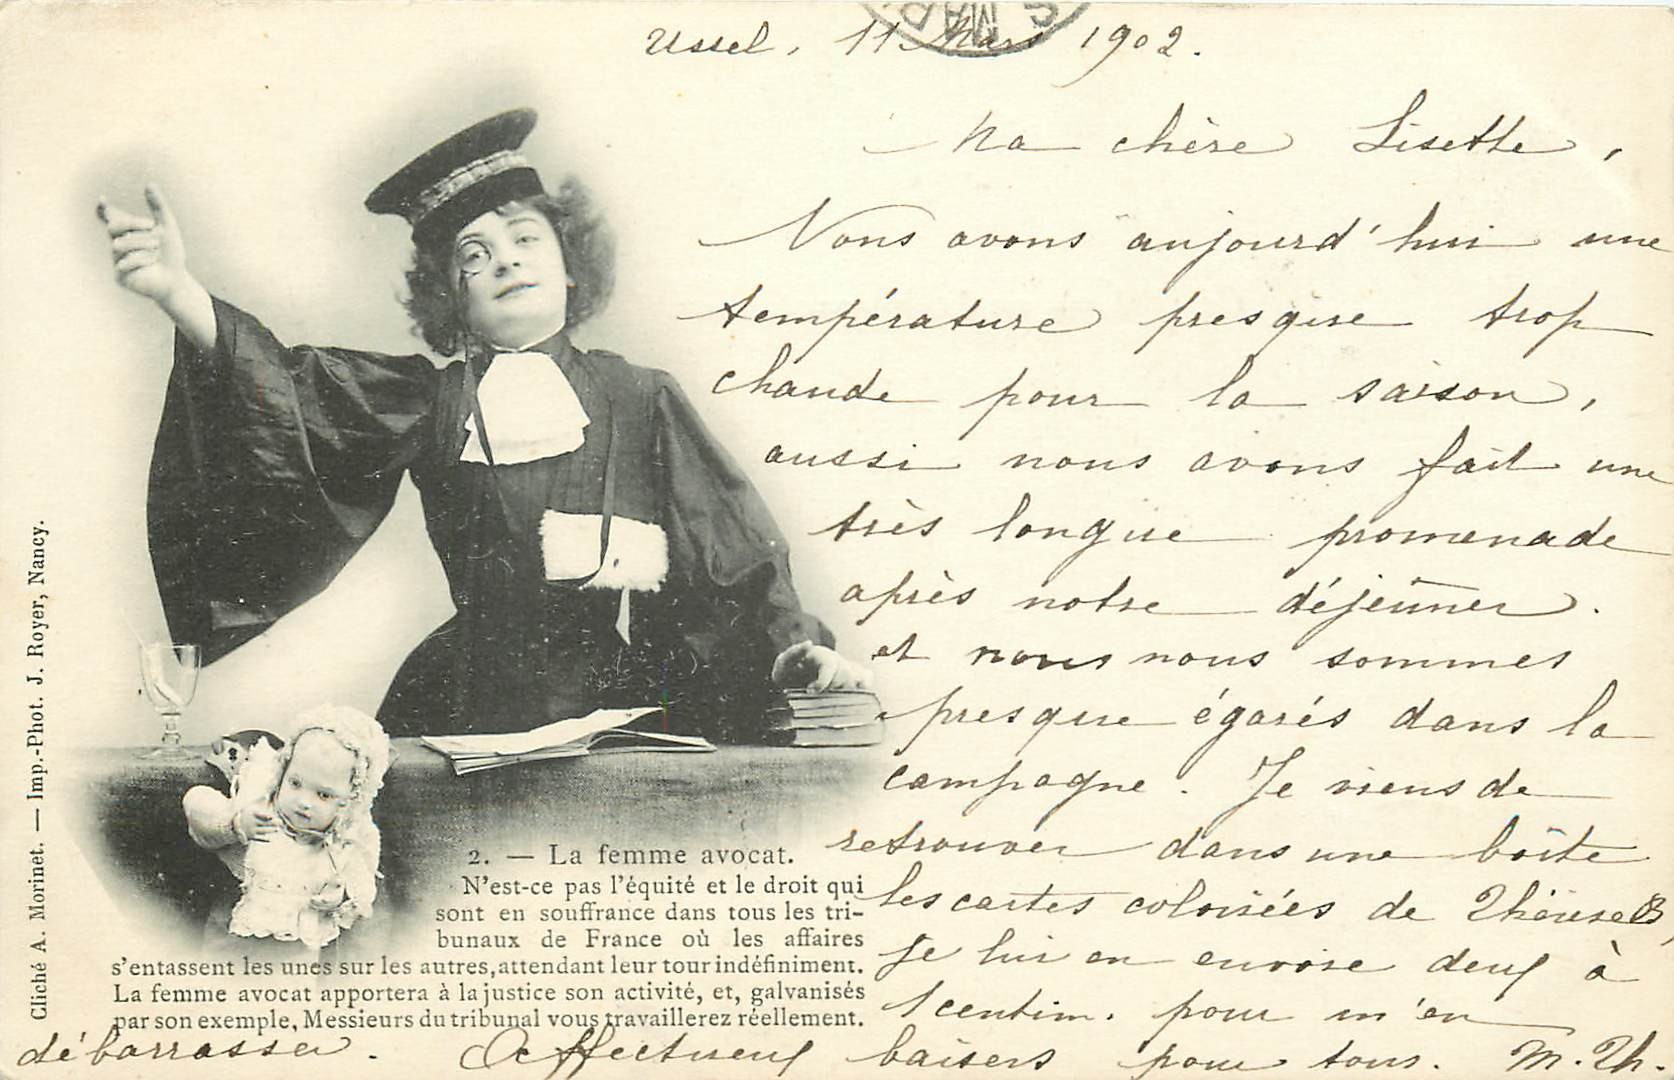 Ussel, 11 Mars 1902.
Ma chère Lisette,
Nous avons aujourd'hui une
température presque trop
chaude pour la saison,
aussi nous avons fait une
très longue promenade
après notre déjeûner.
et nous nous sommes
presque égarés dans la
campagne. Je viens de
retrouver dans une boîte
les cartes coloriées de Thérèse B,
je lui en envoie deux à
1 centim. pour m'en
débarrasser. Affectueux baisers pour tous. M. Th.
2. — La femme avocat.
N'est-ce pas l'équité et le droit qui
sont en souffrance dans tous les tri-
bunaux de France où les affaires
s'entassent les unes sur les autres, attendant leur tour indéfiniment.
La femme avocat apportera à la justice son activité, et, galvanisés
par son exemple, Messieurs du tribunal vous travaillerez réellement.
Cliché A. Morinet. — Imp.-Phot. J. Royer, Nancy.